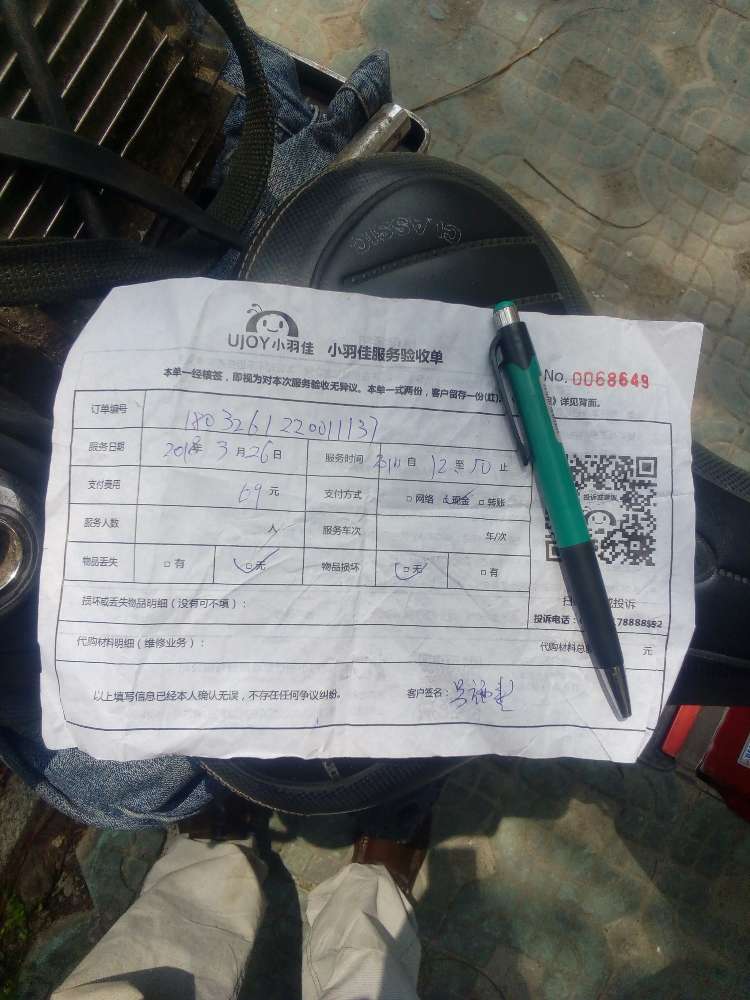 CLASSIC
UJOY小羽佳 小羽佳服务验收单
No. 0068649
本单一经核签，即视为对本次服务验收无异议。本单一式两份，客户留存一份(红)。 》详见背面。
订单编号 180326122001137
服务日期 2018年 3月26日 服务时间 自 12 至 50 止
支付费用 69元 支付方式 □网络 □现金 □转账
服务人数 人 服务车次 车/次
投诉或建议
物品丢失 □有 □无 物品损坏 □无 □有
损坏或丢失物品明细（没有可不填）：
扫 投诉
投诉电话： 78888592
代购材料明细（维修业务）： 代购材料总 元
以上填写信息已经本人确认无误，不存在任何争议纠纷。 客户签名：